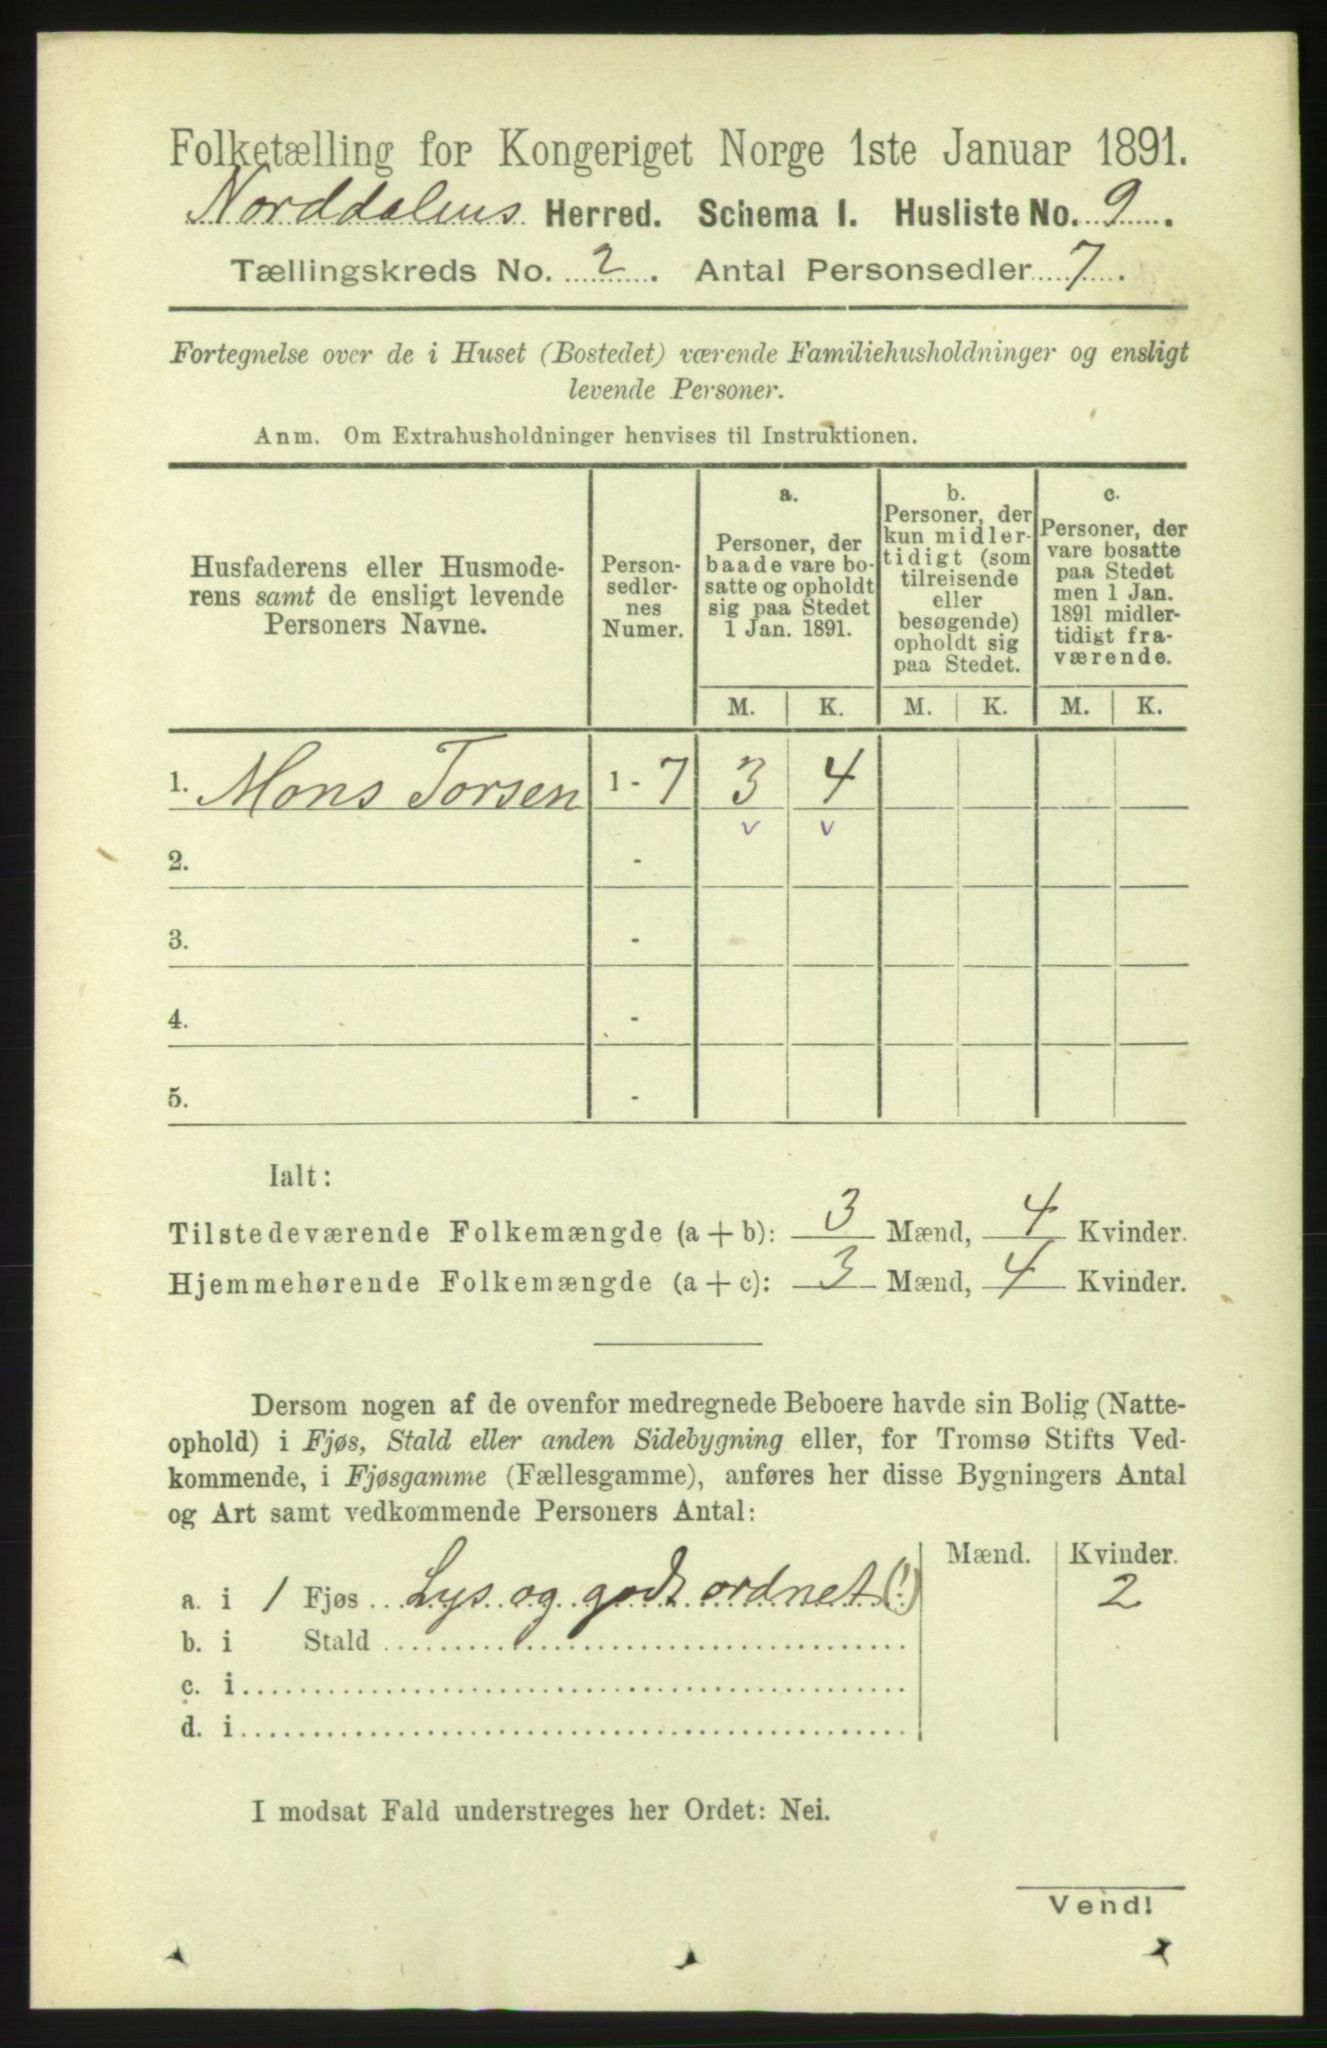 Folketælling for Kongeriget Norge 1ste Januar 1891.
Norddalens Herred. Schema I. Husliste No. 9.
Tællingskreds No. 2. Antal Personsedler 7.
Fortegnelse over de i Huset (Bostedet) værende Familiehusholdninger og ensligt
levende Personer.
Anm. Om Extrahusholdninger henvises til Instruktionen.
Husfaderens eller Husmode-
rens samt de ensligt levende
Personers Navne.
Person-
sedler-
nes
Numer.
a.
Personer, der
baade vare bo-
satte og opholdt
sig paa Stedet
1 Jan. 1891.
b.
Personer, der
kun midler-
tidigt (som
tilreisende
eller
besøgende)
opholdt sig
paa Stedet.
c.
Personer, der
vare bosatte
paa Stedet
men 1 Jan.
1891 midler-
tidigt fra-
værende.
M. K. M. K. M. K.
1. Mons Torsen 1 - 7 3 4
v v
2. -
3. -
4. -
5. -
Ialt:
Tilstedeværende Folkemængde (a + b): 3 Mænd, 4 Kvinder.
Hjemmehørende Folkemængde (a + c): 3 Mænd, 4 Kvinder.
Dersom nogen af de ovenfor medregnede Beboere havde sin Bolig (Natte-
ophold) i Fjøs, Stald eller anden Sidebygning eller, for Tromsø Stifts Ved-
kommende, i Fjøsgamme (Fællesgamme), anføres her disse Bygningers Antal
og Art samt vedkommende Personers Antal:
Mænd. Kvinder.
a. i 1 Fjøs Lys og godt ordnet (!) 2
b. i Stald
c. i
d. i
I modsat Fald understreges her Ordet: Nei.
Vend!